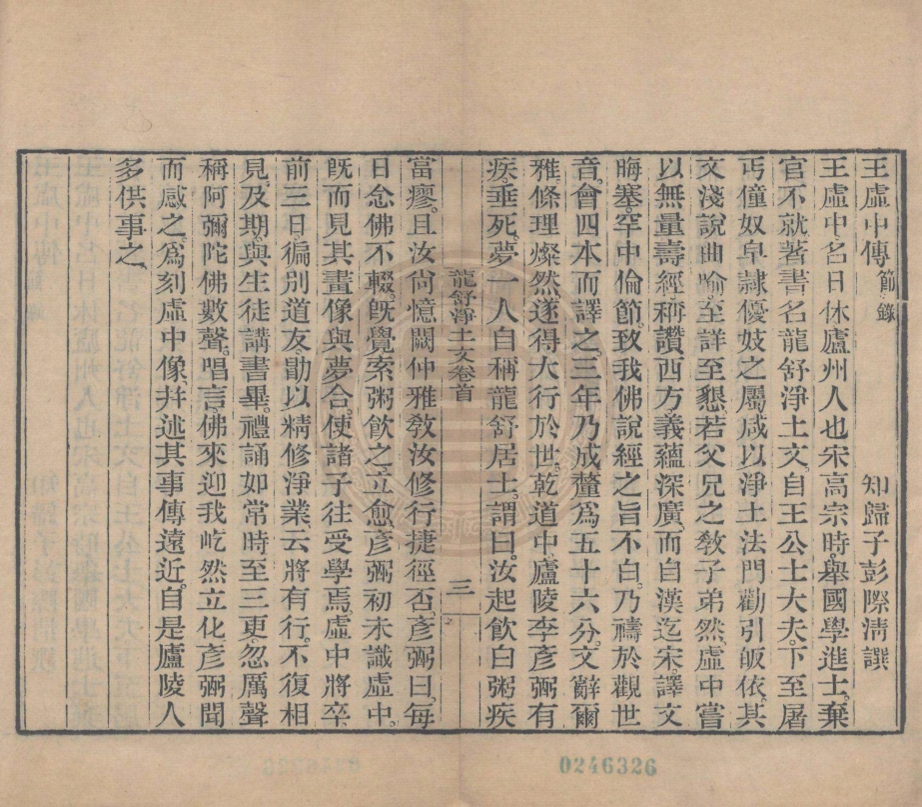 王虛中傳節錄　知歸子彭際淸譔
王虛中名日休廬州人也宋高宗時。舉國學進士。棄
官不就著書名龍舒淨土文。自王公士大夫。下至屠
丐僮奴皁隸優妓之屬咸以淨土法門勸引皈依。其
文淺說曲喻。至詳至懇。若父兄之敎子弟然。虛中嘗
以無量壽經稱讚西方。義蘊深廣。而自漢迄宋。譯文
晦塞罕中倫節。致我佛說經之旨不白。乃禱於觀世
音。會四本而譯之。三年乃成釐爲五十六分。文辭爾
雅條理燦然遂得大行於世。乾道中。廬陵李彥弼有
疾垂死夢一人自稱龍舒居士。謂曰。汝起飮白粥疾
龍舒淨土文卷首　三
當瘳。且汝尙憶闕仲雅敎汝修行捷徑否。彥弼曰。每
日念佛不輟。旣覺索粥飮之。立愈。彥弼初未識虛中。
旣而見其畫像與夢合。使諸子往受學焉。虛中將卒
前三日徧別道友。勖以精修淨業。云將有行。不復相
見。及期。與生徒講書畢。禮誦如常時至三更。忽厲聲
稱阿彌陀佛數聲。唱言。佛來迎我屹然立化。彥弼聞
而感之。爲刻虛中像。幷述其事傳遠近。自是廬陵人
多供事之。
0246326